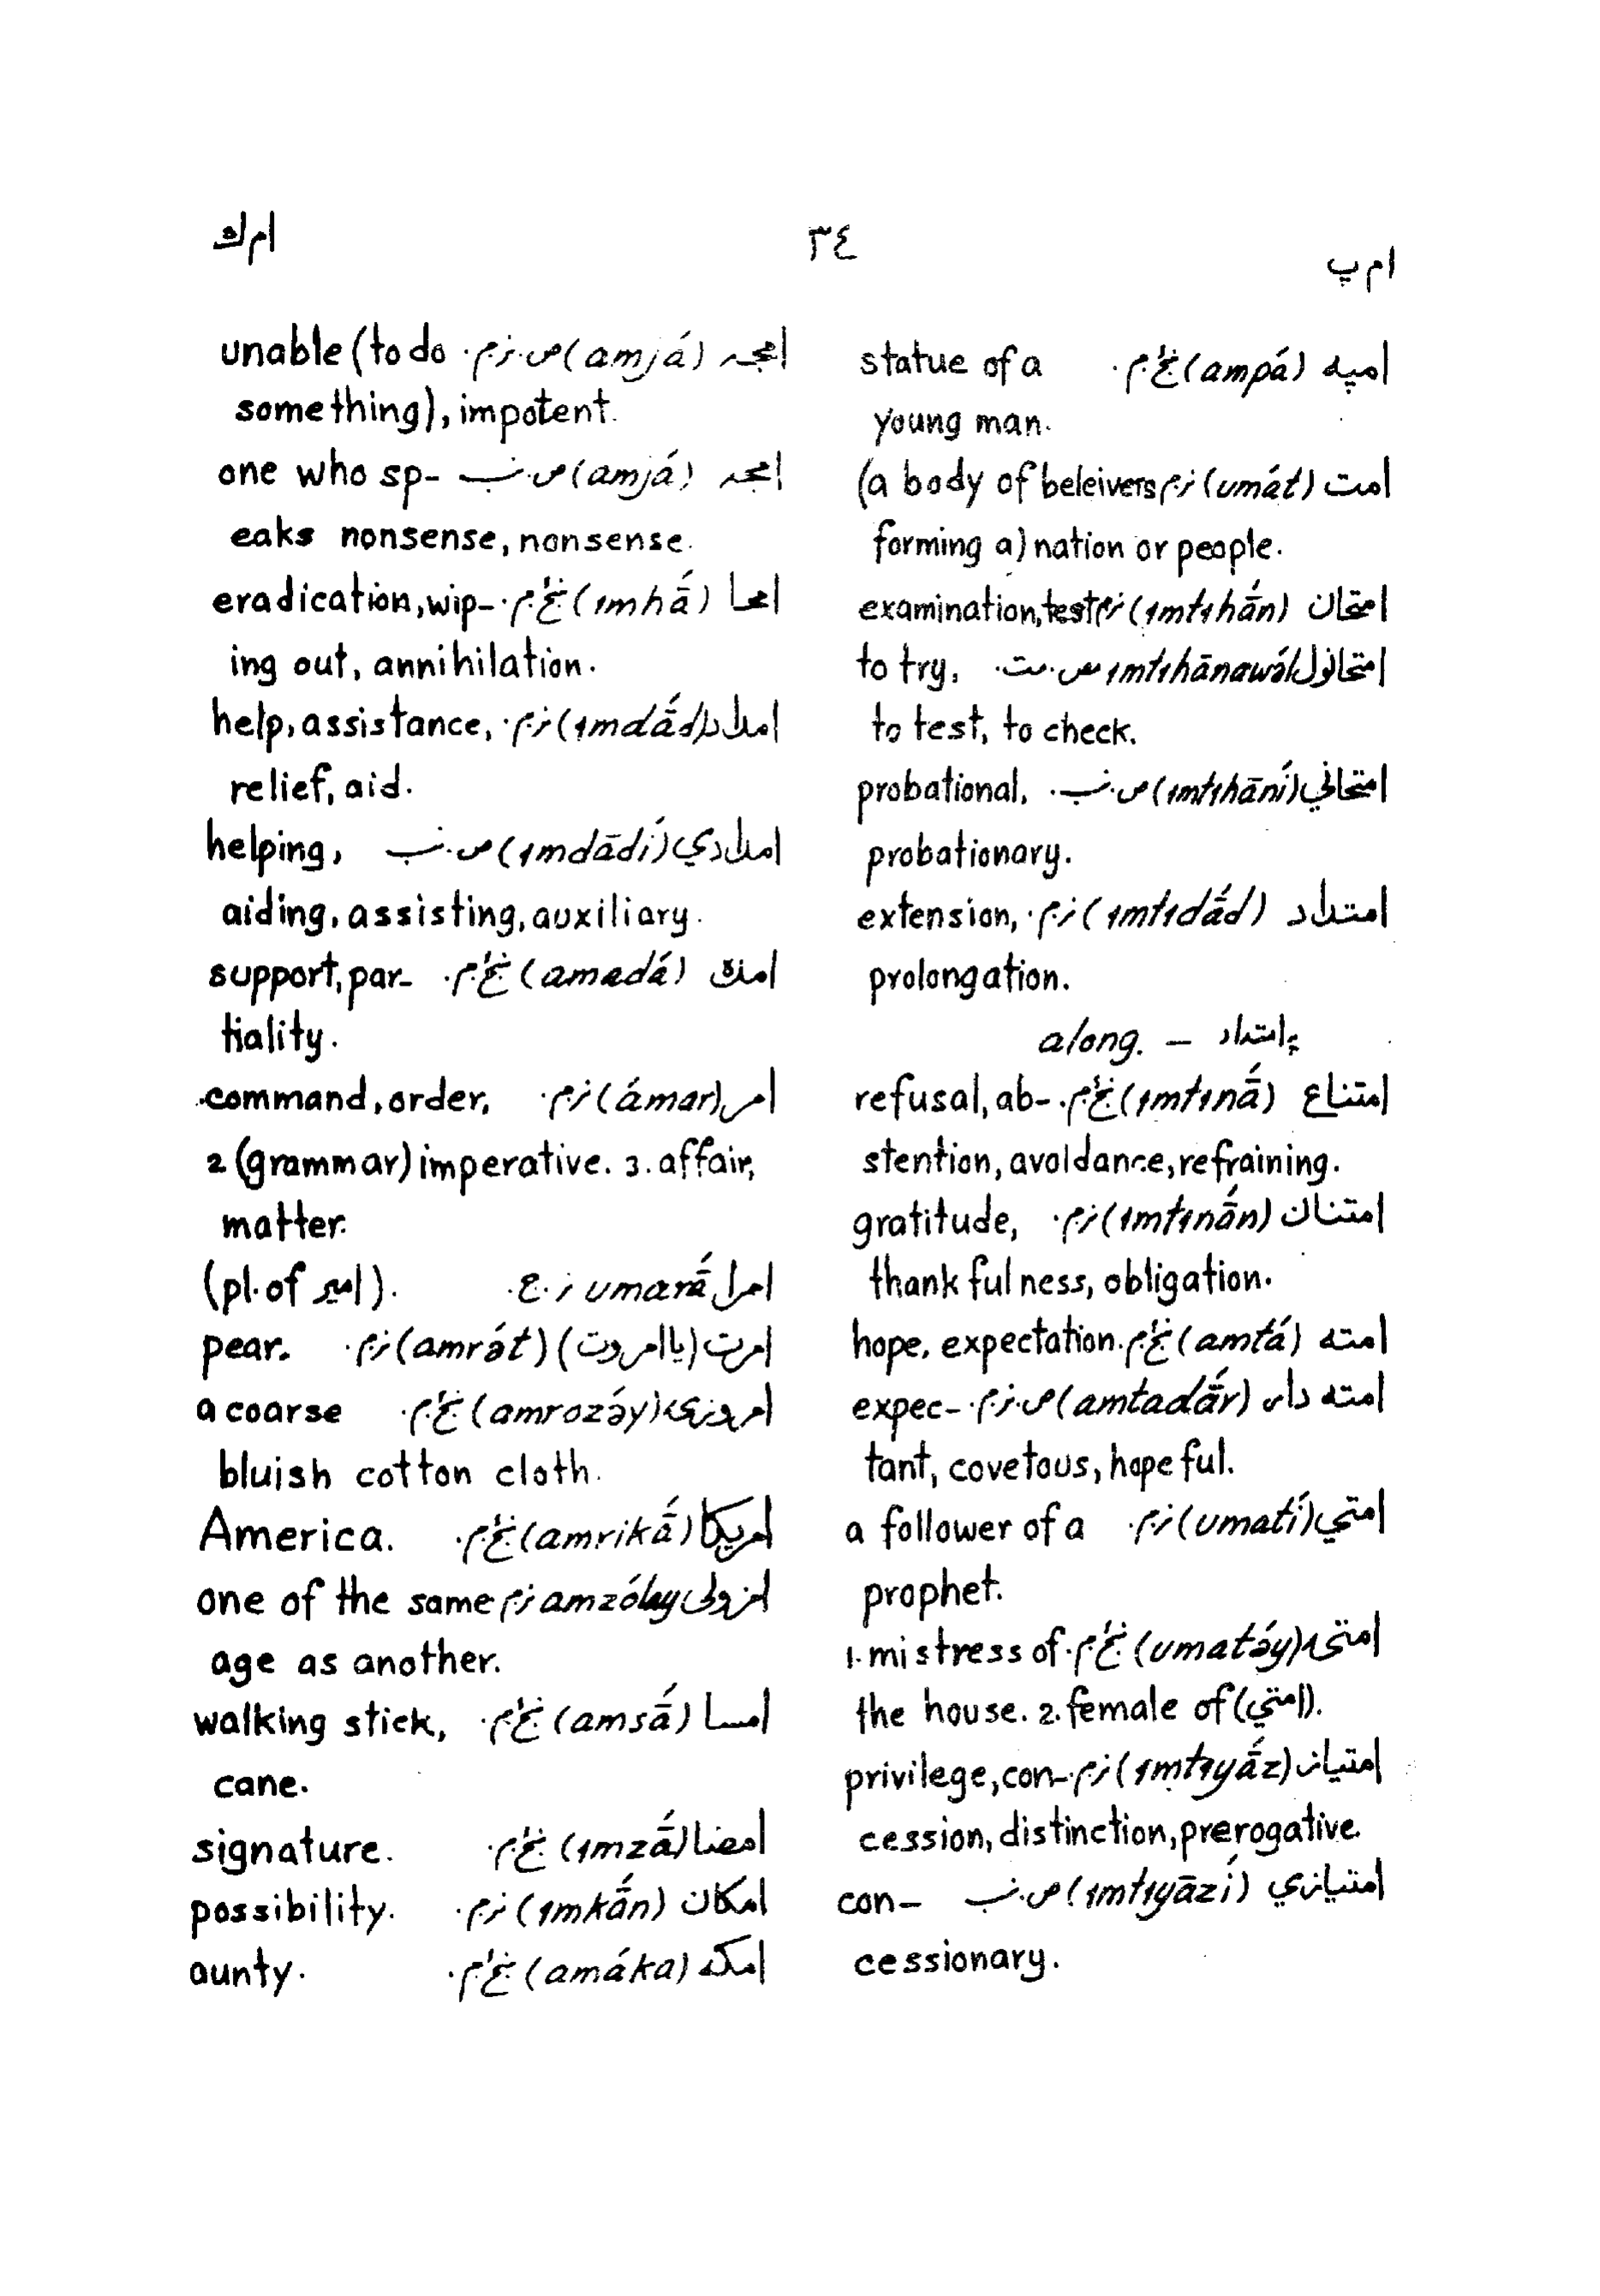 ام پ
٣٤
ام ك
امپه (ampá) ښځ م. statue of a
young man.
امت (umát) نر م (a body of beleivers
forming a) nation or people.
امتحان (ımtıhā́n) نر م examination, test
امتحانول ımtıhānawə́l مص. مت. to try,
to test, to check.
امتحاني (ımtıhāní) ص. نب. probational,
probationary.
امتداد (ımtıdā́d) نر م. extension,
prolongation.
په امتداد — along.
امتناع (ımtınā́) ښځ م. refusal, ab-
stention, avoidance, refraining.
امتنان (ımtınā́n) نر م. gratitude,
thankfulness, obligation.
امته (amtá) ښځ م. hope, expectation.
امته دار (amtadā́r) ص. نر م. expec-
tant, covetous, hopeful.
امتي (umatí) نر م. a follower of a
prophet.
امتۍ (umatə́y) ښځ م. 1. mistress of
the house. 2. female of (امتي).
امتياز (ımtıyā́z) نر م. privilege, con-
cession, distinction, prerogative.
امتيازي (ımtıyāzí) ص. نب con-
cessionary.
امجه (amjá) ص. نر م. unable (to do
something), impotent.
امجه (amjá) ص. نب one who sp-
eaks nonsense, nonsense.
امحا (ımhā́) ښځ م. eradication, wip-
ing out, annihilation.
امداد (ımdā́d) نر م. help, assistance,
relief, aid.
امدادي (ımdādí) ص. نب helping,
aiding, assisting, auxiliary.
(amadá) ښځ م. support, par-
tiality.
امر (ámar) نر م. command, order,
2 (grammar) imperative. 3. affair,
matter.
امرا umarā́ نر ج. (pl. of امير).
امرت (يا امروت) (amrə́t) نر م. pear.
امروزۍ (amrozə́y) ښځ م. a coarse
bluish cotton cloth.
امريكا (amrikā́) ښځ م. America.
امزولى amzólay نر م one of the same
age as another.
امسا (amsā́) ښځ م. walking stick,
cane.
امضا (ımzā́) ښځ م. signature.
امكان (ımkā́n) نر م. possibility.
امكه (amáka) ښځ م. aunty.